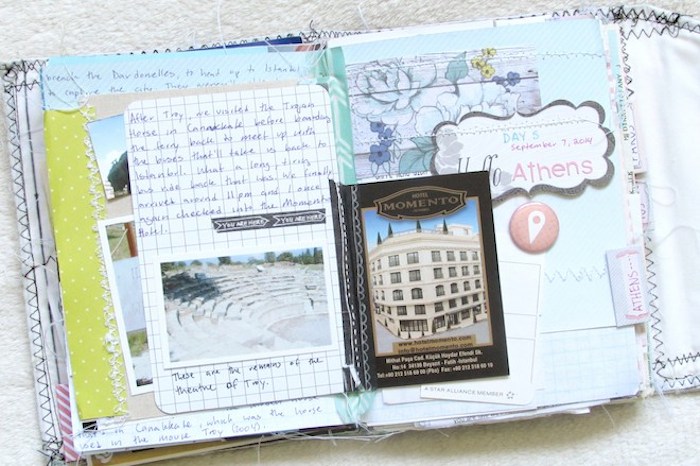 breach the Dardanelles, to head up to Istanbul
to capture the city. Their
After Troy, we visited the Trojan
Horse in Canakkale before boarding
the ferry back to meet up with
the busses that'll take us back to
Istanbul. What a long, tiring
bus ride back that was. We finally
arrived around 11pm and I once
again checked into the Momento
Hotel.
YOU ARE HERE YOU ARE HERE
These are the remains of the
theatre of Troy.
in Canakkale, which was the horse
used in the movie Troy (2004).
DAY 5
September 7, 2014
Hello Athens
HOTEL
MOMENTO
www.hotelmomento.com
info@hotelmomento.com
Mithat Paşa Cad. Küçük Haydar Efendi Sk.
No:14 34130 Beyazıt - Fatih -Istanbul
Tel:+90 212 516 60 00 (Pbx) Fax:+90 212 518
A STAR ALLIANCE MEMBER
ATHENS